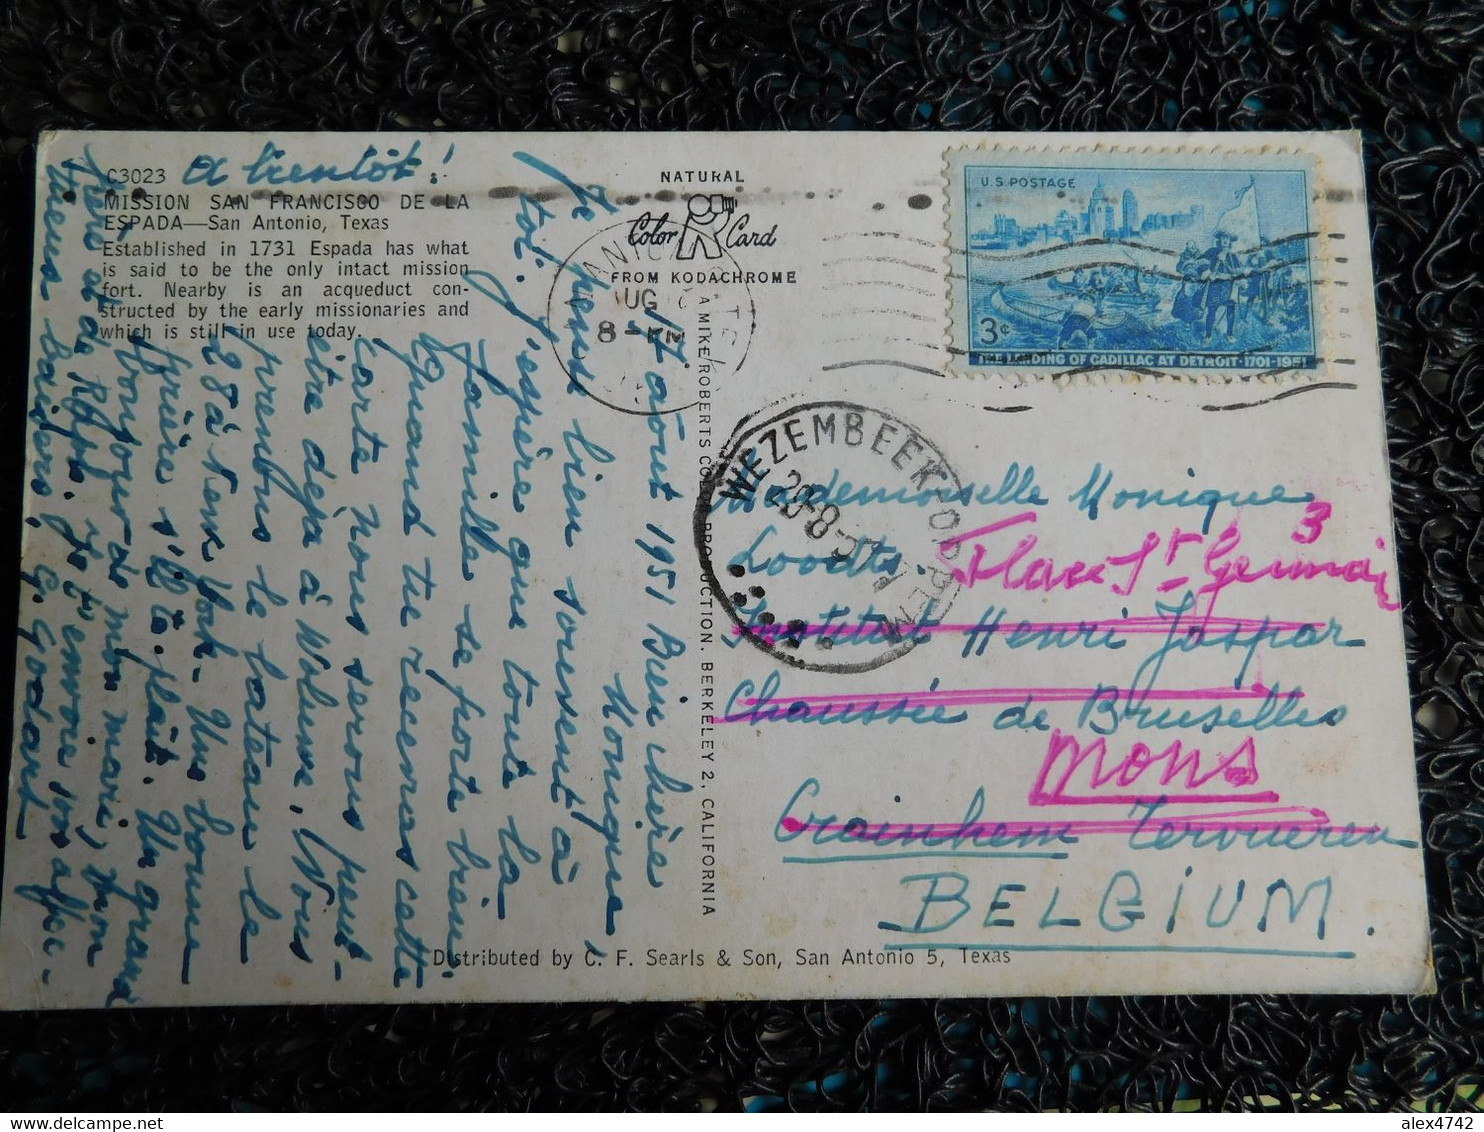 C3023
MISSION SAN FRANCISCO DE LA
ESPADA—San Antonio, Texas
Established in 1731 Espada has what
is said to be the only intact mission
fort. Nearby is an acqueduct con-
structed by the early missionaries and
which is still in use today.
a bientôt!
NATURAL
Color Card
FROM KODACHROME
A MIKE ROBERTS COLOR PRODUCTION. BERKELEY 2, CALIFORNIA
Distributed by C. F. Searls & Son, San Antonio 5, Texas
17 août 1951 Bien chère
Monique,
Je pense bien souvent à
toi. j'espère que toute la
famille se porte bien.
Quand tu recevras cette
carte nous serons peut-
être déjà à Wolum. Nous
prenons le bateau le
28 à New York. Une bonne
prière s'il te plaît. Un grand
bonjour de mon mari, mon
père et de
Je t'envoie mes affec-
tueux baisers! G. Godart
U.S. POSTAGE
3¢
THE LANDING OF CADILLAC AT DETROIT·1701-1951
AUG
8 - PM
WEZEMBEEK OPPEM
20-8-51
Mademoiselle Monique
Loodts.
3
Place St Germain
Institut Henri Jaspar
Chaussée de Bruxelles
Mons
Crainhem Tervueren
BELGIUM.
alex4742